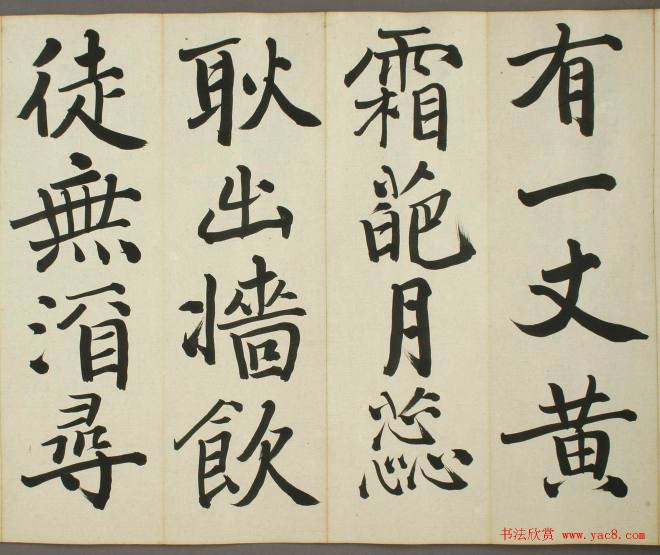 有一丈黄
霜葩月蕊
耿出牆飲
徒無湏尋
书法欣赏 www.yac8.com